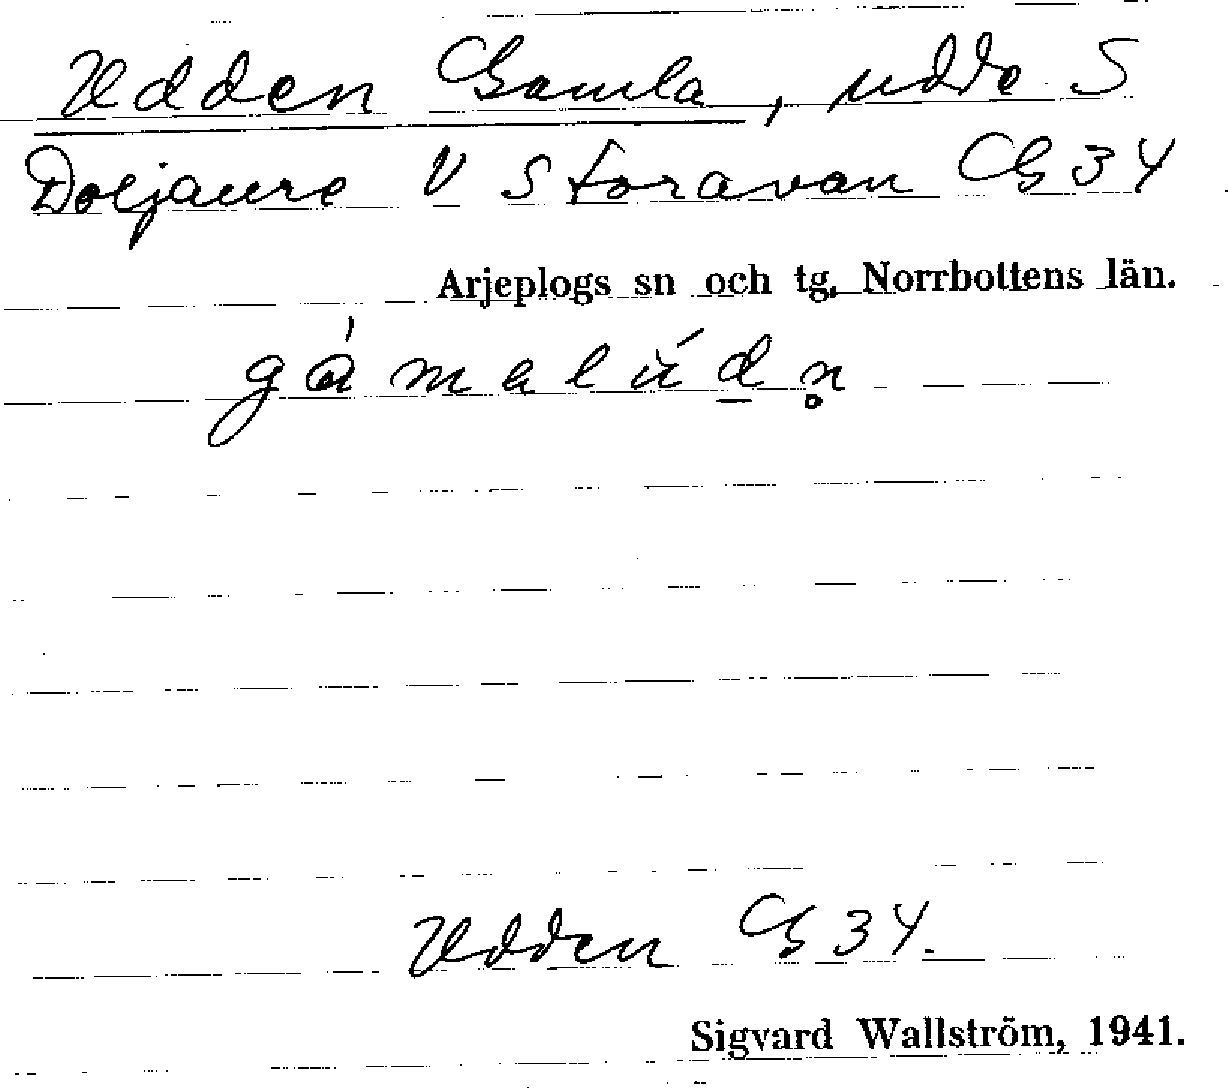 Udden Gamla, udde S
Doljaure V Storavan G34
Arjeplogs sn och tg. Norrbottens län.
gámalúd̲n̥
Udden G34.
Sigvard Wallström, 1941.